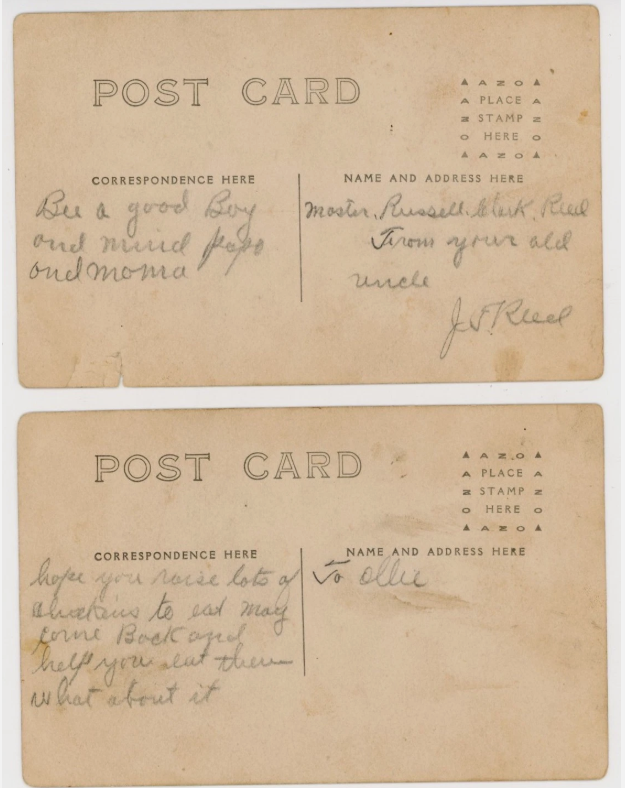 POST CARD
▲ A Z O ▲
A PLACE A
Z STAMP Z
O HERE O
▲ A Z O ▲
CORRESPONDENCE HERE
NAME AND ADDRESS HERE
Bee a good Boy
and mind papa
and moma
Master. Russell. Clark. Reed
From your old
uncle
J F Reed
POST CARD
▲ A Z O ▲
A PLACE A
Z STAMP Z
O HERE O
▲ A Z O ▲
CORRESPONDENCE HERE
NAME AND ADDRESS HERE
hope you raise lots of
chickens to eat may
come Back and
help you eat them
what about it
To Ollie